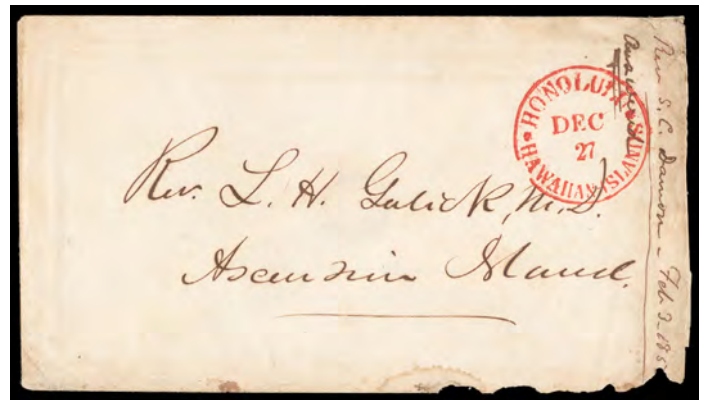 Rev. L. H. Gulick, M.D.
Ascension Island.
HONOLULU
DEC
27
HAWAIIAN ISLANDS
Rev S. C. Damon - Feb 3 - 185
Answered